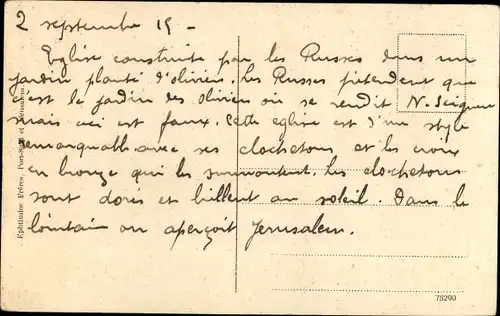 2 septembre 19 -
Eglise construite par les Russes dans un
jardin planté d'oliviers. Les Russes prétendent que
c'est le jardin des Oliviers où se rendit N. Seigneur
mais ceci est faux. Cette eglise est d'une style
remarquable avec ses clochetons et les croix
en bronze qui les surmontent. Les clochetons
sont dorés et brillent au soleil. Dans le
lointain on aperçoit Jerusalem.
Ephtimios Frères, Port-Said et Jérusalem.
78290